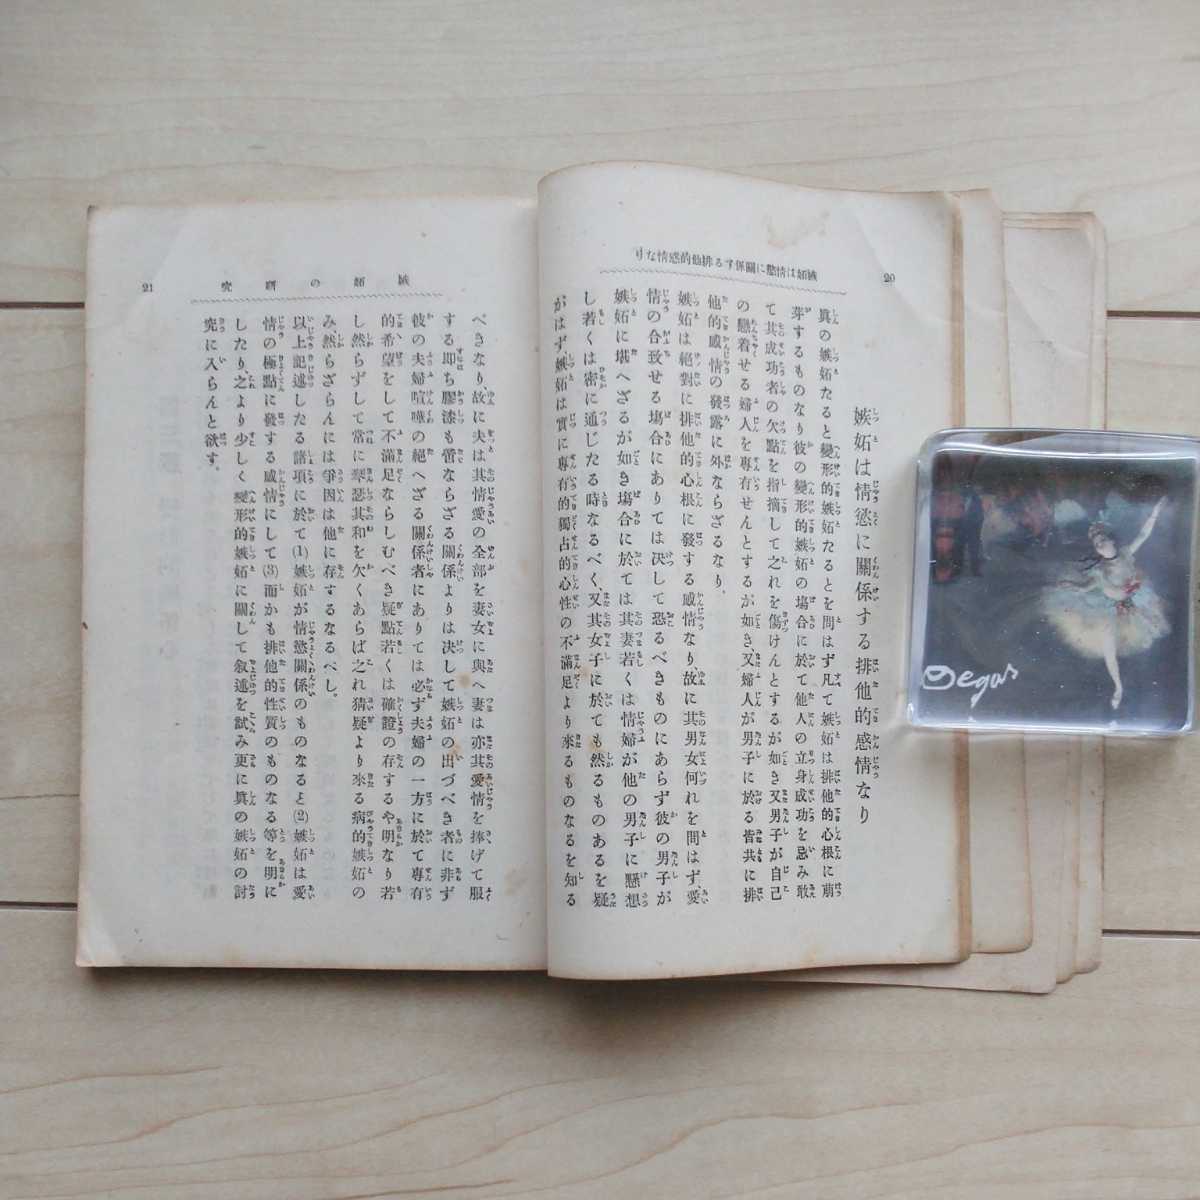 嫉妬は情慾に關係する排他的感情なり
20
嫉妬は情慾に關係する排他的感情なり
眞の嫉妬たると變形的嫉妬たるとを問はず凡て嫉妬は排他的心根に萠
芽するものなり彼の變形的嫉妬の塲合に於て他人の立身成功を忌み敢
て其成功者の欠點を指摘して之れを傷けんとするが如き又男子が自己
の戀着せる婦人を專有せんとするが如き、又婦人が男子に於る皆共に排
他的感情の發露に外ならざるなり、
嫉妬は絶對に排他的心根に發する感情なり故に其男女何れを問はず、愛
情の合致せる塲合にありては决して恐るべきものにあらず彼の男子が
嫉妬に堪へざるが如き塲合に於ては其妻若くは情婦が他の男子に懸想
し若くは密に通じたる時なるべく又其女子に於ても然るものあるを疑
がはず嫉妬は實に專有的獨占的心性の不滿足より來るものなるを知る
嫉妬の研究
21
べきなり、故に夫は其情愛の全部を妻女に與へ妻は亦其愛情を捧げて服
する即ち膠漆も啻ならざる關係よりは决して嫉妬の出づべき者に非ず
彼の夫婦喧嘩の絶へざる關係者にありては必ず夫婦の一方に於て專有
的希望をして不滿足ならしむべき疑點若くは確證の存するや明なり若
し然らずして常に琴瑟其和を欠くあらば之れ猜疑より來る病的嫉妬の
み、然らざらんには爭因は他に存するなるべし。
以上記述したる諸項に於て(1)嫉妬が情慾關係のものなると(2)嫉妬は愛
情の極點に發する感情にして(3)而かも排他的性質のものなる等を明に
したり、之より少しく變形的嫉妬に關して叙述を試み更に眞の嫉妬の討
究に入らんと欲す。
Degas